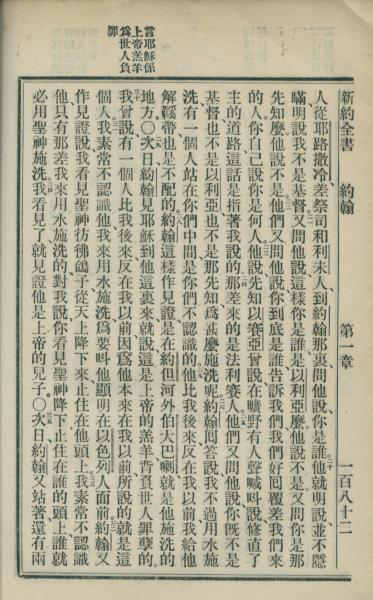 新約全書 約翰 第一章 一百八十二
人從耶路撒冷差祭司和利未人到約翰那裏問他說你是誰他就明說並不隱
瞞明說我不是基督又問他說這樣你是誰是以利亞麼他說不是又問你是那
先知麼他說不是他們又問他說你到底是誰告訴我們我們好回覆差我們來
的人你自己說你是何人他說先知以賽亞曾說在曠野有人聲喊呌說修直了
主的道路這話是指著我說的那差來的是法利賽人他們又問他說你旣不是
基督也不是以利亞也不是那先知爲甚麼施洗呢約翰囘答說我不過用水施
洗有一個人站在你們中間是你們不認識的他比我後來反在我以前我給他
解鞵帶也是不配的約翰這樣作見證是在約但河外伯大巴喇就是他施洗的
地方〇次日約翰見耶穌到他這裏來就說這是上帝的羔羊背負世人罪孽的
我曾說有一個人比我後來反在我以前因爲他本來在我以前所說的就是這
個人我素常不認識他我來用水施洗爲要呌他顯明在以色列人面前約翰又
作見證說我看見聖神彷彿鴿子從天上降下來止住在他頭上我素常不認識
他只有那差我來用水施洗的對我說你看見聖神降下止住在誰的頭上誰就
必用聖神施洗我看見了就見證他是上帝的兒子〇次日約翰又站著還有兩
言耶穌係
上帝羔羊
爲世人負
罪